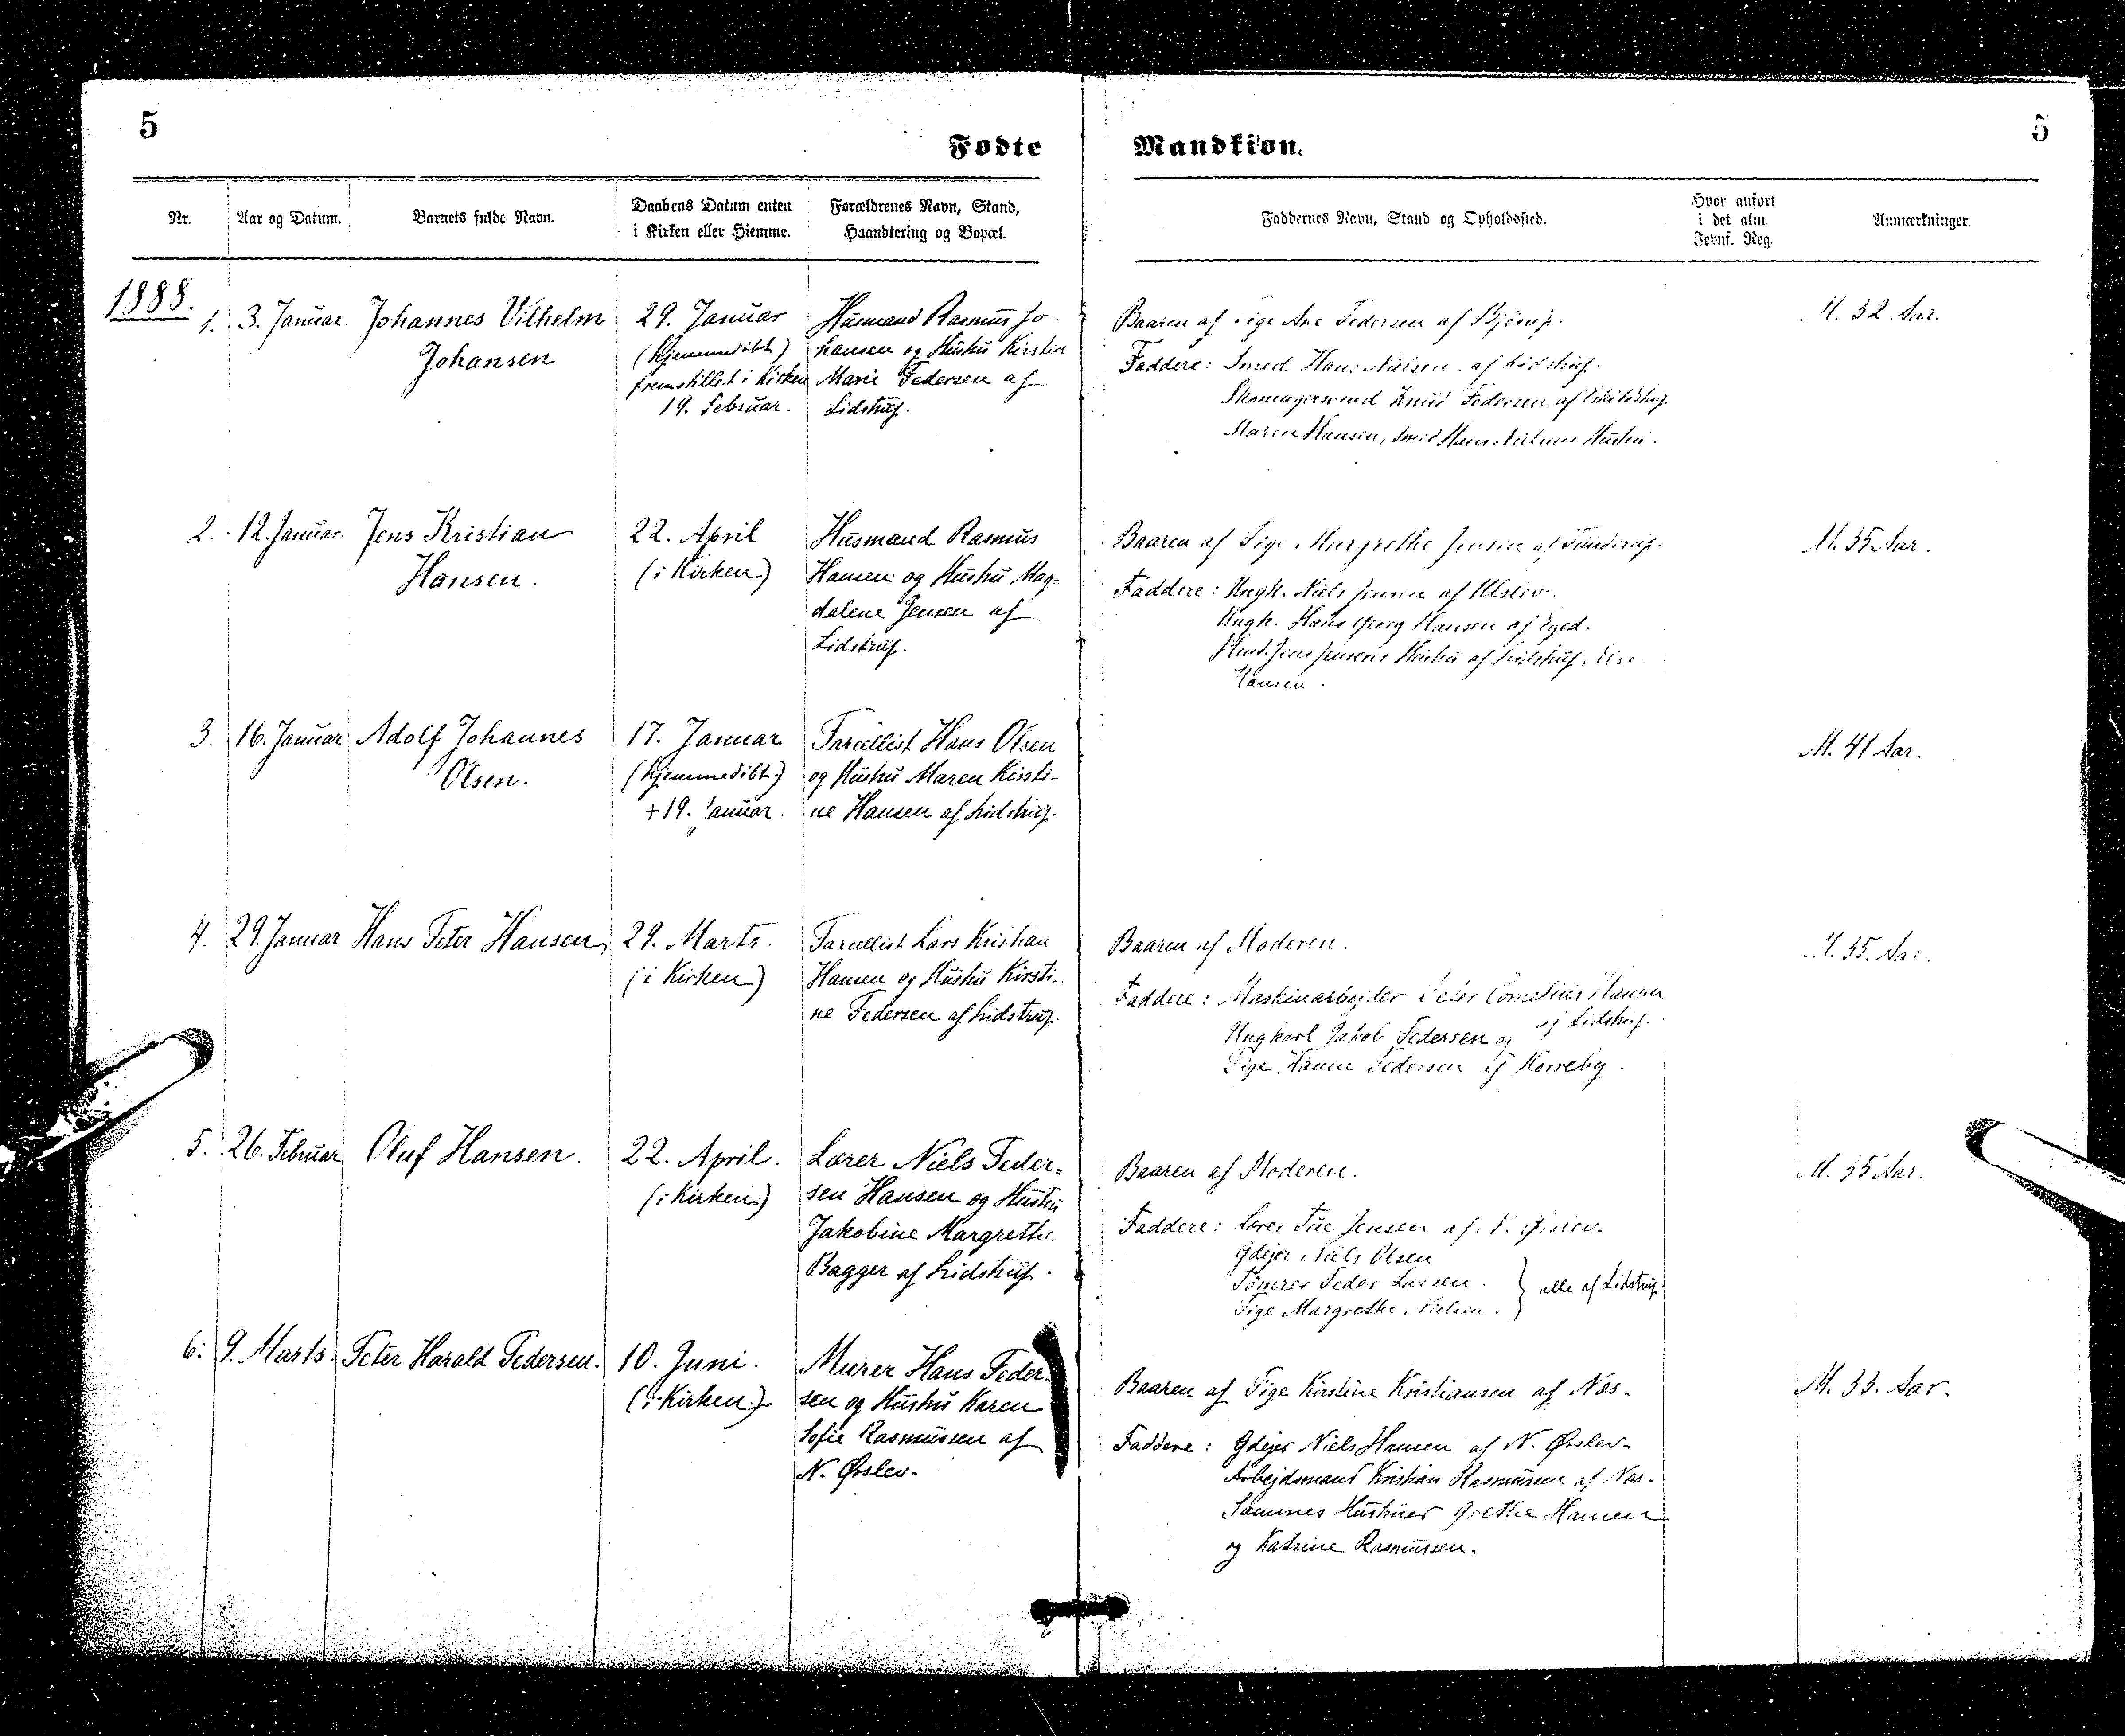 5
5
Fødte
Mandkiøn.
Nr.
Aar og Datum.
Barnets fulde Navn.
Daabens Datum enten
i Kirken eller Hiemme.
Forældrenes Navn, Stand,
Haandtering og Bopæl.
Faddernes Navn, Stand og Opholdssted.
Hvor anført
i det alm.
Jevnf. Reg.
Anmærkninger.
1888.
1.
3. Januar.
Johannes Vilhelm
Johansen
29. Januar
(hjemmedøbt)
fremstillet i Kirken
19. Februar.
Husmand Rasmus Jo-
hansen og Hustru Kirstine
Marie Pedersen af
Lidstrup.
Baaren af Pige Ane Pedersen af Bjørup.
Faddere: Smed Hans Nielsen af Lidstrup.
Skomagersvend Knud Pedersen af
Maren Hansen, Smed Hans Nielsens Hustru.
M. 32 Aar.
2.
12. Januar.
Jens Kristian
Hansen.
22. April
(i Kirken)
Husmand Rasmus
Hansen og Hustru Mag-
dalene Jensen af
Lidstrup.
Baaren af Pige Margrethe Jensen af
Faddere: Ungk. Niels Jensen af Ulslev.
Ungk. Hans Georg Hansen af Eged.
Jens Jensens Hustru af Lidstrup, Else
Hansen.
M. 35 Aar.
3.
16. Januar
Adolf Johannes
Olsen.
17. Januar
(hjemmedøbt)
+ 19. Januar.
Parcellist Hans Olsen
og Hustru Maren Kirsti-
ne Hansen af Lidstrup.
M. 41 Aar.
4.
29. Januar
Hans Peter Hansen
29. Marts.
(i Kirken)
Parcellist Lars Kristian
Hansen og Hustru Kirsti-
ne Pedersen af Lidstrup.
Baaren af Moderen.
Faddere: Maskinarbejder Peter Cornelius Hansen
af Lidstrup.
Ungkarl Jakob Pedersen og
Pige Hanne Pedersen af Korreby.
M. 35. Aar.
5.
26. Februar
Oluf Hansen.
22. April.
(i Kirken)
Lærer Niels Peder-
sen Hansen og Hustru
Jakobine Margrethe
Bagger af Lidstrup.
Baaren af Moderen.
Faddere: Lærer Tue Jensen af N. Ørslev.
Gdejer Niels Olsen
Tømrer Peder Larsen. } alle af Lidstrup.
Pige Margrethe Nielsen.
M. 35 Aar.
6.
9. Marts.
Peter Harald Pedersen.
10. Juni.
(i Kirken)
Murer Hans Peder-
sen og Hustru Karen
Sofie Rasmussen af
N. Ørslev.
Baaren af Pige Kirstine Kristiansen af Næs.
Faddere: Gdejer Niels Hansen af N. Ørslev.
Arbejdsmand Kristian Rasmussen af Næs.
Sammes Hustruer Grethe Hansen
og Katrine Rasmussen.
M. 33. Aar.